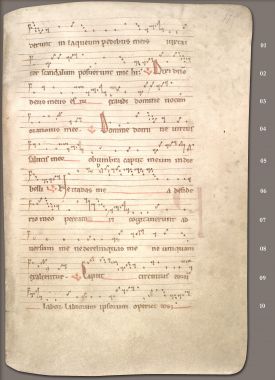 verunt in laqueum pedibus meis iuxta
iter scandalum posuerunt michi Dixi domino
deus meus es tu exaudi domine vocem
orationis mee Domine domine virtus
salutis mee obumbra caput meum in die
belli Ne tradas me a deside
rio meo peccatori cogitaverunt ad
versum me ne derelinquas me ne umquam
exaltentur Caput circuitus eorum
labor labiorum ipsorum operiet eos
01
02
03
04
05
06
07
08
09
10